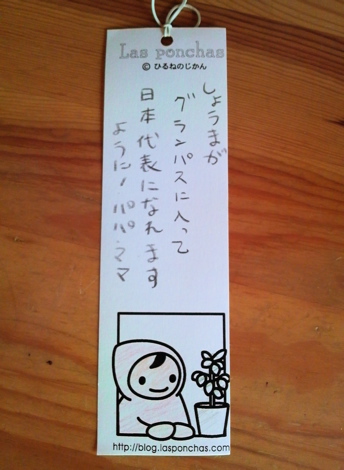 Las ponchas
© ひるねのじかん
しょうまが
グランパスに入って
日本代表になれます
ように！パパ・ママ
http://blog.lasponchas.com